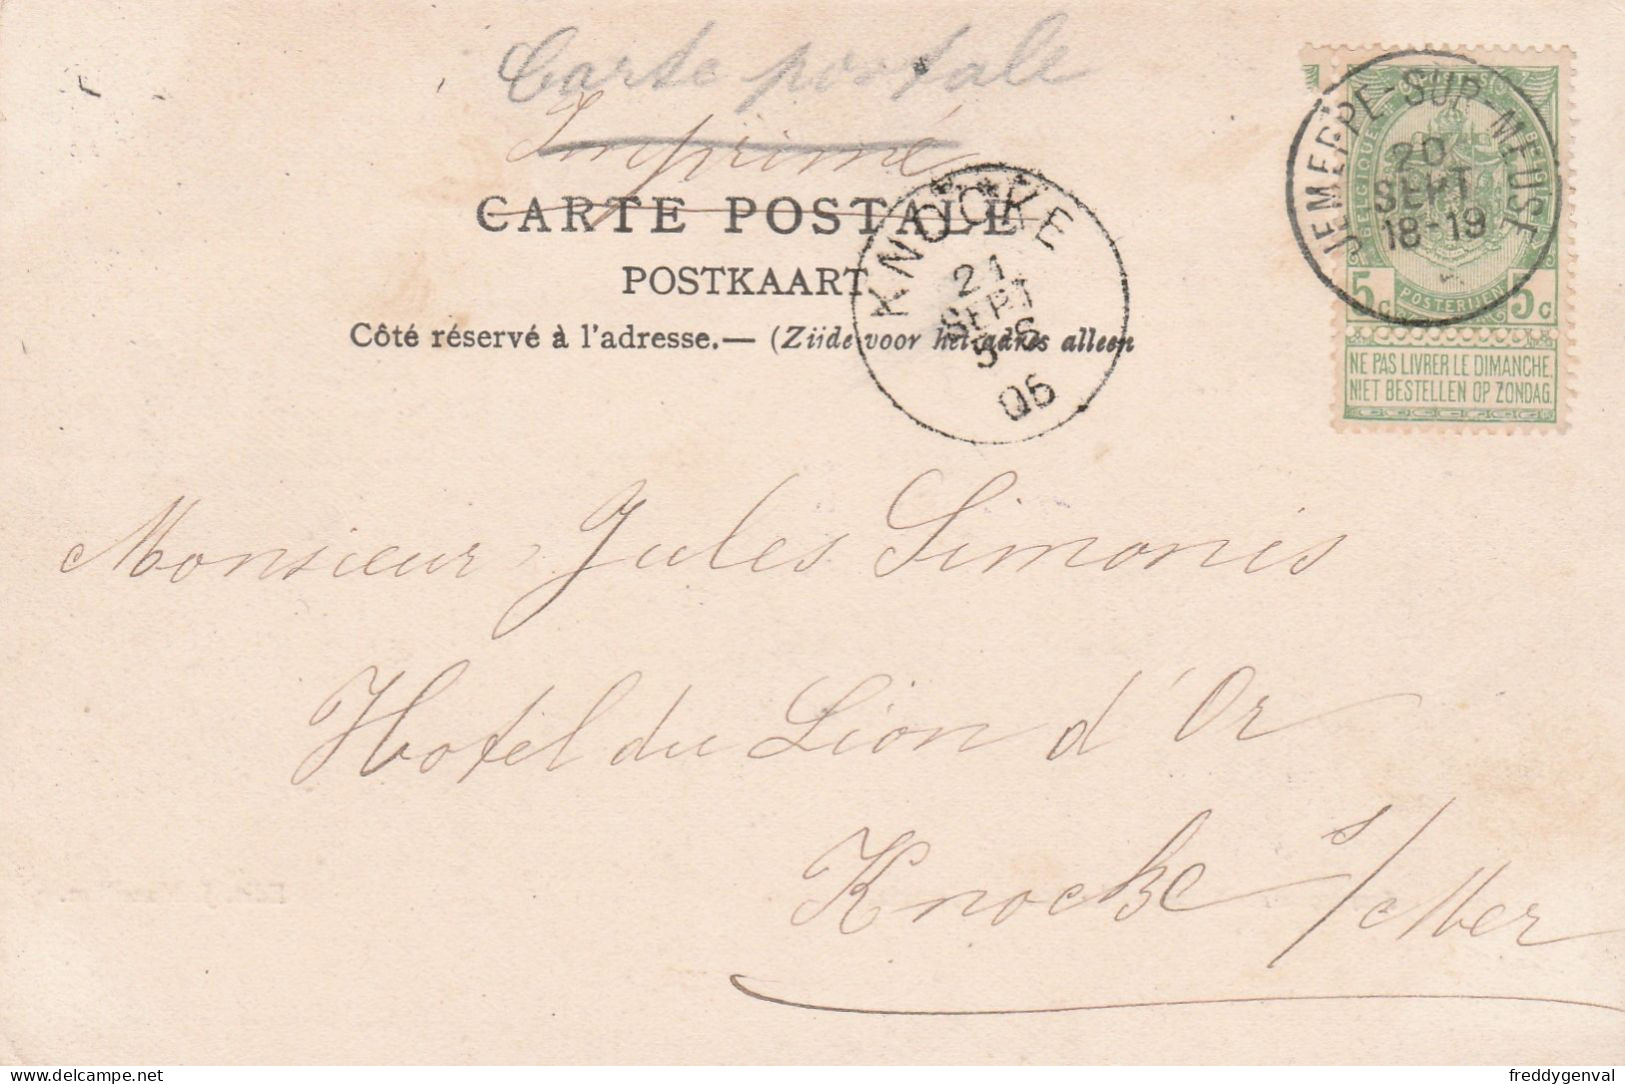 Carte postale
Imprimé
CARTE POSTALE
POSTKAART
Côté réservé à l'adresse.— (Ziide voor het adres alleen
KNOCKE
21
SEPT
5-6
06
JEMEPPE-SUR-MEUSE
20
SEPT
18-19
BELGIQUE
BELGIE
POSTERIJEN
5c 5c
NE PAS LIVRER LE DIMANCHE.
NIET BESTELLEN OP ZONDAG.
Monsieur Jules Simonis
Hotel du Lion d'Or
Knocke s/Mer
freddygenval